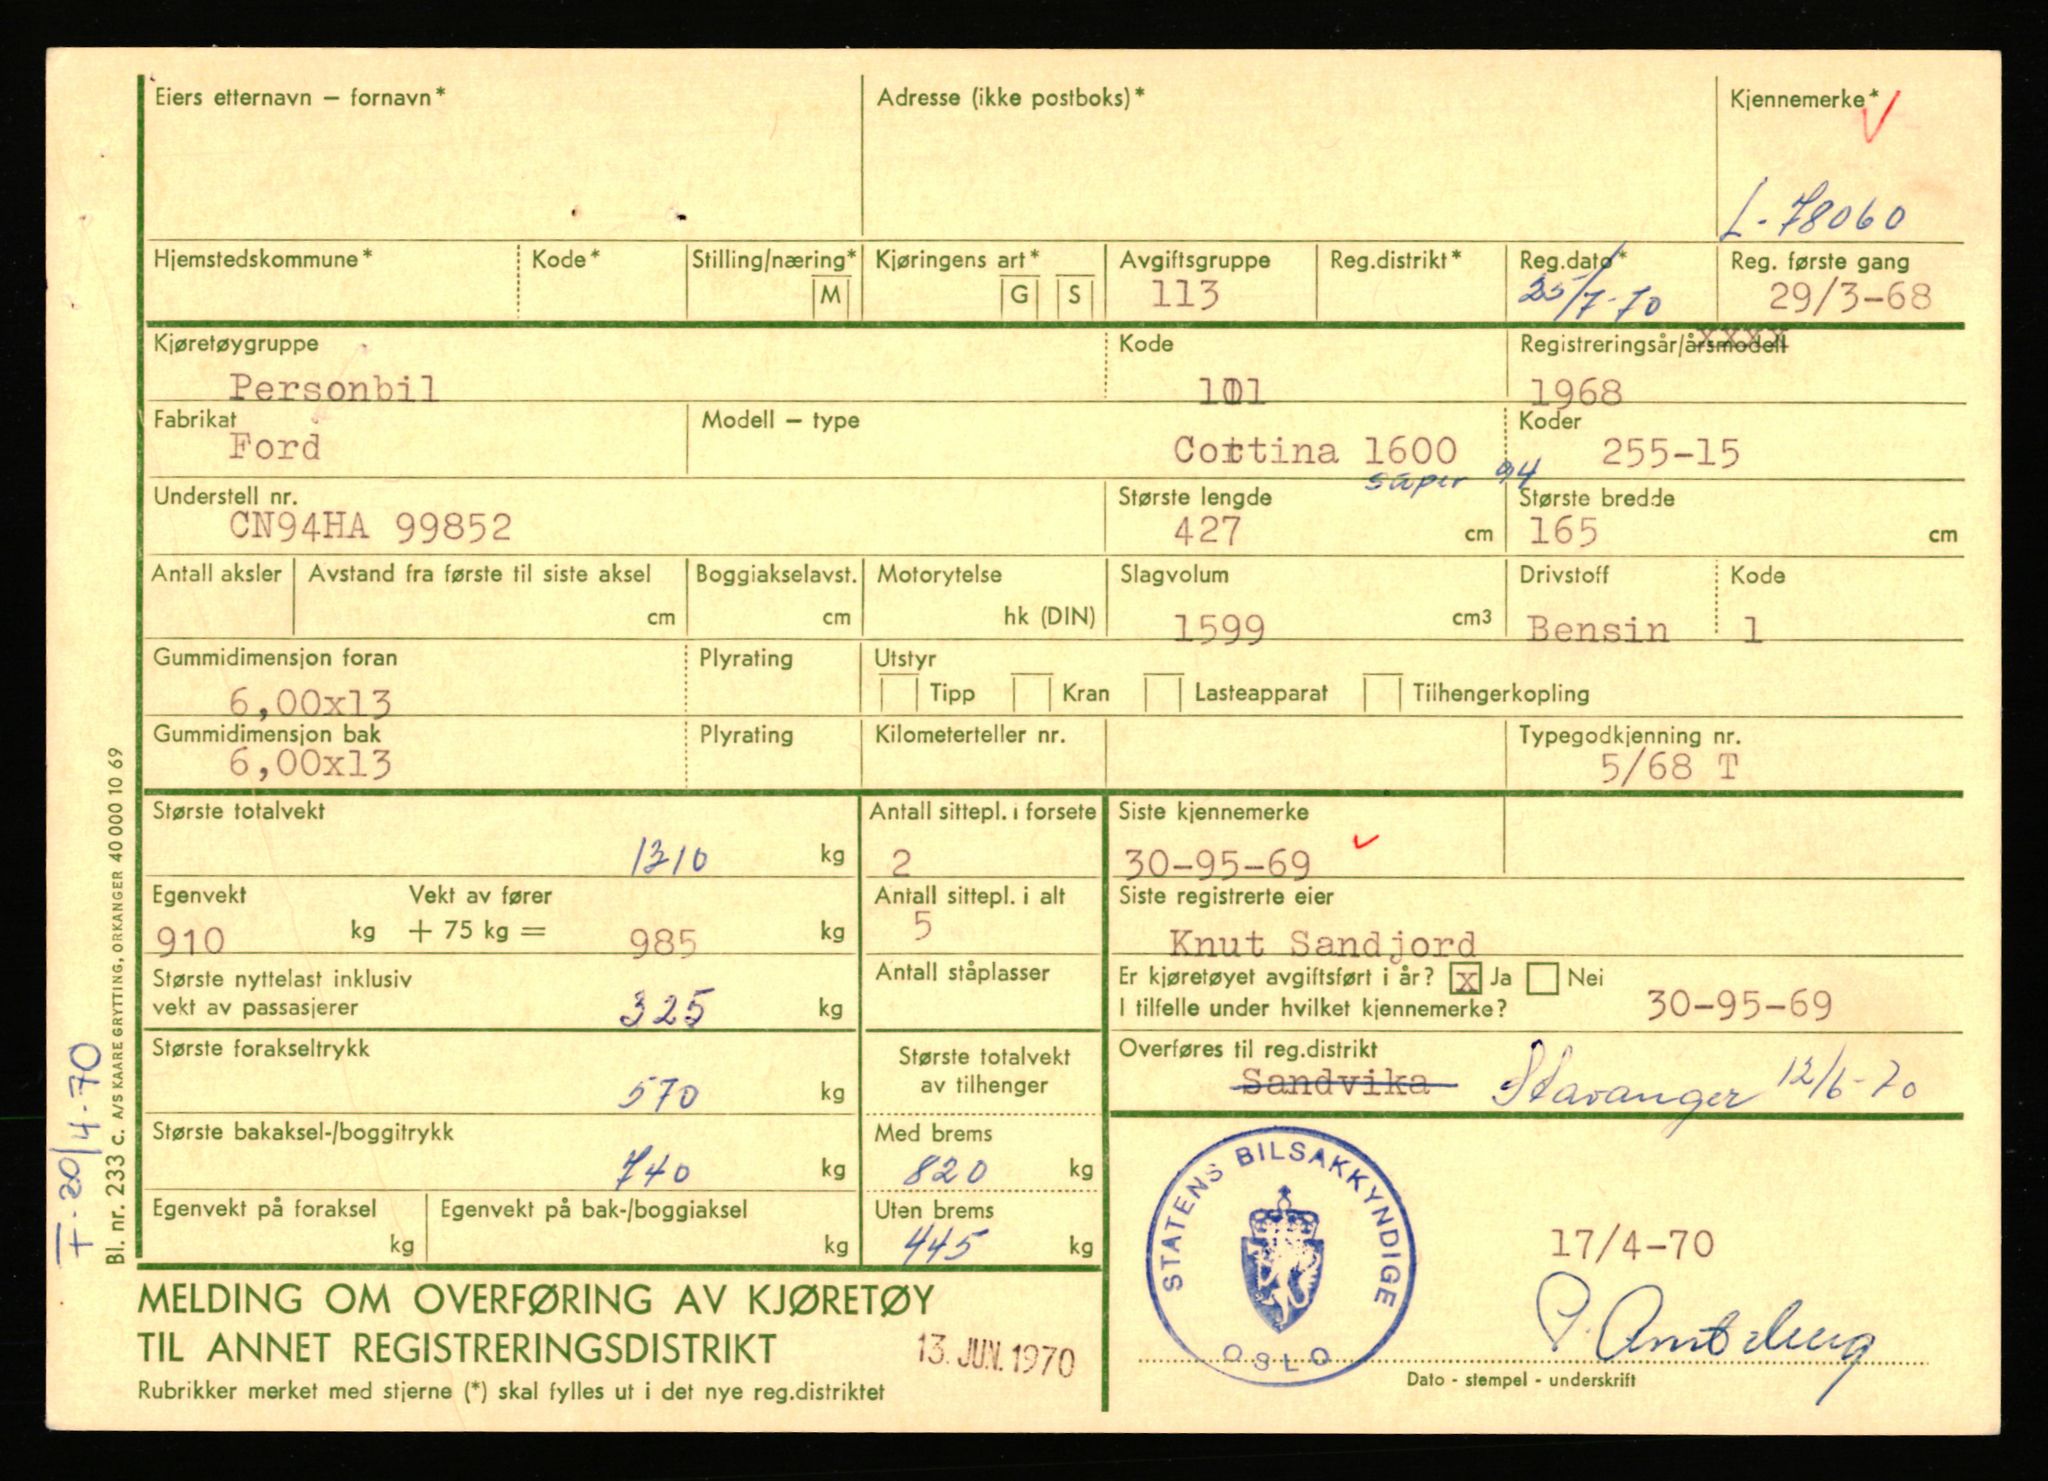 Eiers etternavn – fornavn* Adresse (ikke postboks)* Kjennemerke*
L-78060
Hjemstedskommune* Kode* Stilling/næring* Kjøringens art* Avgiftsgruppe Reg.distrikt* Reg.dato* Reg. første gang
M G S 113 25/7-70 29/3-68
Kjøretøygruppe Kode Registreringsår/årsmodell
Personbil 101 1968
Fabrikat Modell – type Koder
Ford Cortina 1600 255-15
super 94
Understell nr. Største lengde Største bredde
CN94HA 99852 427 cm 165 cm
Antall aksler Avstand fra første til siste aksel Boggiakselavst. Motorytelse Slagvolum Drivstoff Kode
cm cm hk (DIN) 1599 cm3 Bensin 1
Gummidimensjon foran Plyrating Utstyr
6,00x13 Tipp Kran Lasteapparat Tilhengerkopling
Gummidimensjon bak Plyrating Kilometerteller nr. Typegodkjenning nr.
6,00x13 5/68 T
Største totalvekt Antall sittepl. i forsete Siste kjennemerke
1310 kg 2 30-95-69
Egenvekt Vekt av fører Antall sittepl. i alt Siste registrerte eier
910 kg + 75 kg = 985 kg 5 Knut Sandjord
Største nyttelast inklusiv Antall ståplasser Er kjøretøyet avgiftsført i år? x Ja Nei
vekt av passasjerer 325 kg I tilfelle under hvilket kjennemerke? 30-95-69
Største forakseltrykk Største totalvekt Overføres til reg.distrikt
570 kg av tilhenger Sandvika Stavanger 12/6-70
Største bakaksel-/boggitrykk Med brems
740 kg 820 kg
Egenvekt på foraksel Egenvekt på bak-/boggiaksel Uten brems
kg kg 445 kg
STATENS BILSAKKYNDIGE
OSLO
17/4-70
MELDING OM OVERFØRING AV KJØRETØY
TIL ANNET REGISTRERINGSDISTRIKT 13. JUN. 1970
Rubrikker merket med stjerne (*) skal fylles ut i det nye reg.distriktet
Dato - stempel - underskrift
Bl. nr. 233 c. A/S KAARE GRYTTING, ORKANGER 40 000 10 69
T-20/4-70